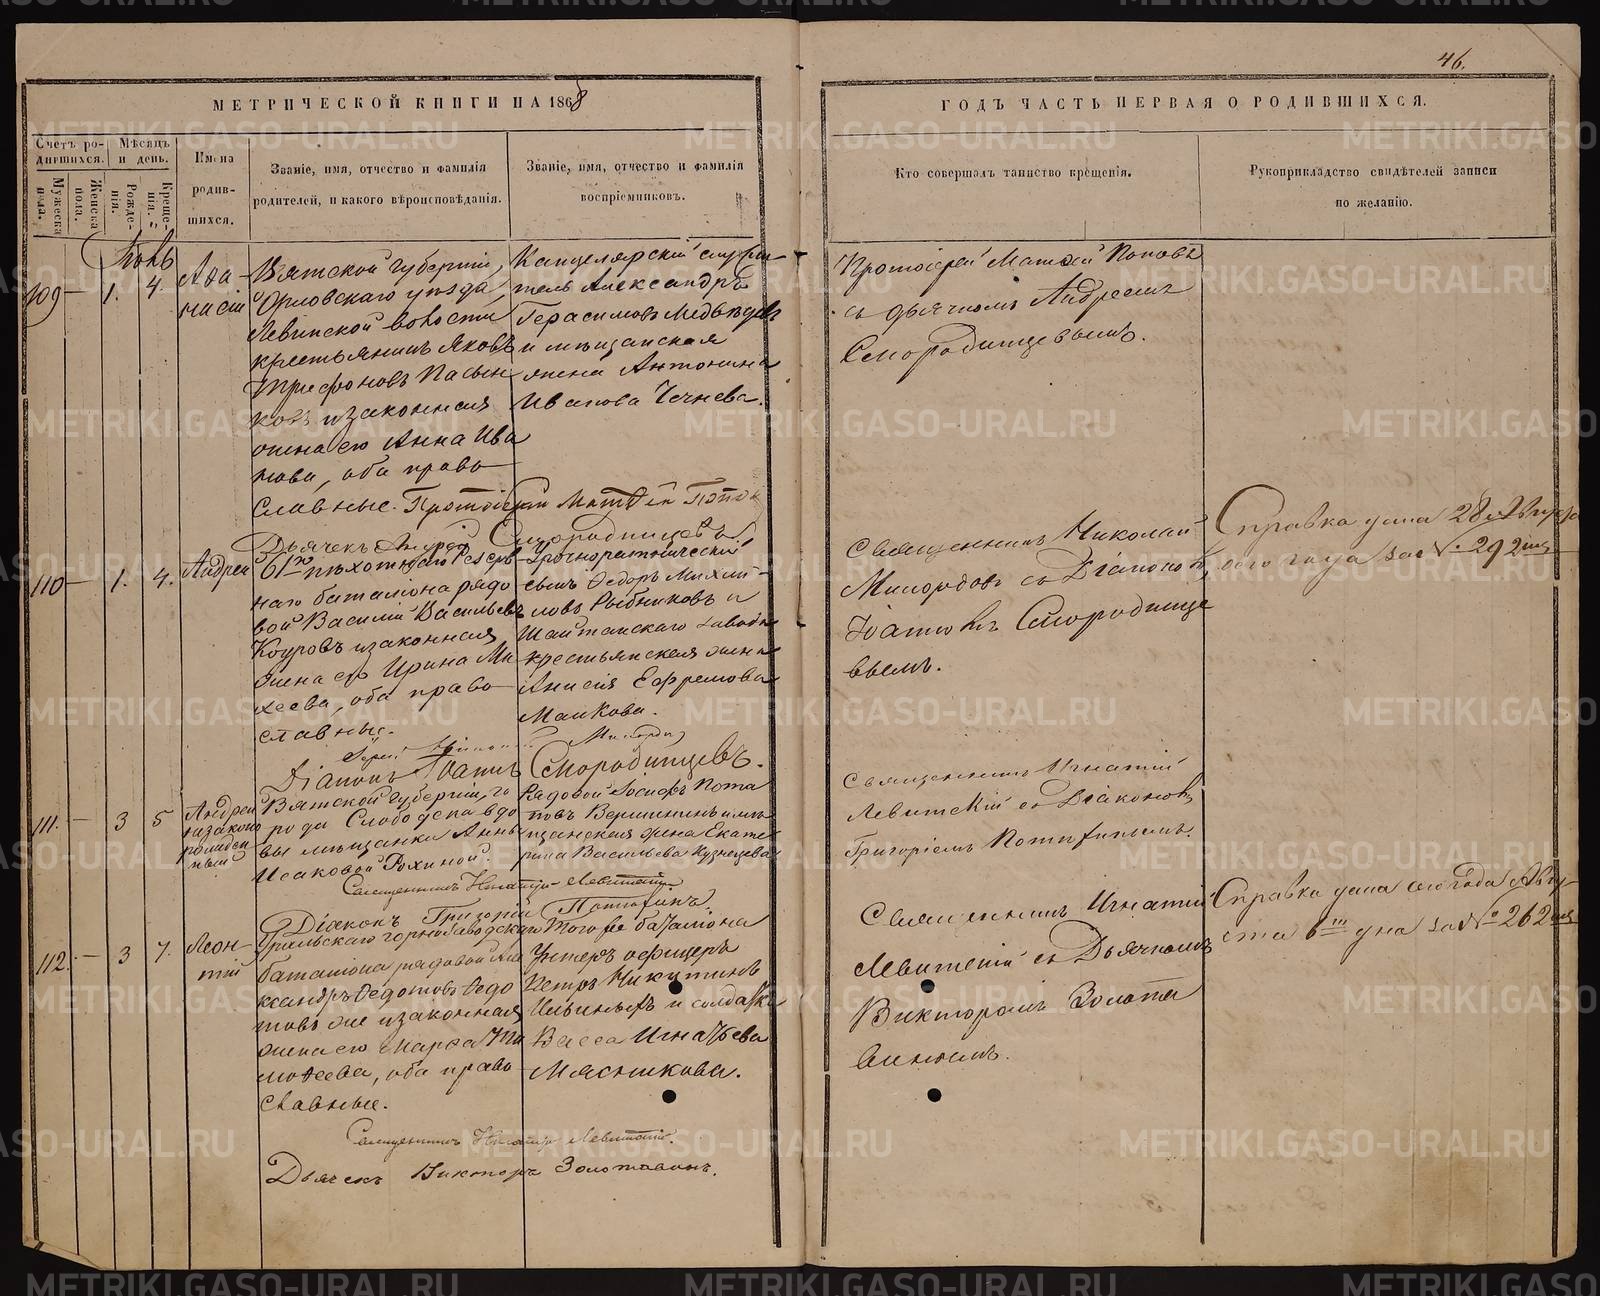 46.
МЕТРИЧЕСКОЙ КНИГИ НА 1868
ГОДЪ ЧАСТЬ ПЕРВАЯ О РОДИВШИХСЯ.
Счетъ ро-
дившихся.
Мужеска
пола.
Женска
пола.
Мѣсяцъ
и день.
Рожде-
нія.
Креще-
нія.
Имена
родив-
шихся.
Званіе, имя, отчество и фамилія
родителей, и какого вѣроисповѣданія.
Званіе, имя, отчество и фамилія
воспріемниковъ.
Кто совершалъ таинство крещенія.
Рукоприкладство свидѣтелей записи
по желанію.
109 — 1. 4.
Афа-
насій
Вятской губерніи,
Орловскаго уѣзда,
Левинской волости
крестьянинъ Яковъ
Трифоновъ Пасын-
ковъ и законная
жена его Анна Ива
нова, оба право-
славные.
Канцелярскій служи-
тель Александръ
Герасимовъ Медвѣдевъ
и мѣщанская
жена Антонина
Иванова
Протоіерей Матѳей Поповъ
съ дьячкомъ Андреемъ
Смородинцевымъ.
Протоіерей Матѳей Попов
Дьячекъ Андрей Смородинцевъ.
110 — 1. 4.
Андрей
61го пѣхотнаго Резерв-
наго баталіона рядо-
вой Василій Васильевъ
и законная
жена его Ирина Ми
хеева, оба право-
славные.
сынъ Ѳедоръ Михай-
ловъ Рыбниковъ и
Шайтанскаго завода
крестьянская жена
Анисія Ефремова
Манкова.
Священникъ Николай
Милордовъ съ Діакономъ
Іоанномъ Смородинце
вымъ.
Справка дана 28 Августа
сего года за № 292
Діаконъ Іоаннъ Смородинцевъ.
111. — 3 5
Андрей
незаконо
рожден
ный
Вятской губерніи, го
рода Слободска вдо
вы мѣщанки Анны
Исаковой
Рядовой Іосифъ Пота
повъ Вершининъ и мѣ
щанская жена Екате
рина Васильева Кузнецова
Священникъ Игнатій
Левитскій съ Діакономъ
Григоріемъ
Священникъ Игнатій Левитскій.
Діаконъ Григорій
112. — 3 7.
Леон-
тій
Уральскаго горнозаводскаго
баталіона рядовой Але
ксандръ Ѳедотовъ Ѳедо
товъ же и законная
жена его Марѳа Ти
моѳеева, оба право
славные.
Того же баталіона
Унтеръ офицеръ
Петръ Никитинъ
и солдатка
Васса Игнатьева
Мясникова.
Священникъ Игнатій
Левитскій съ Дьячкомъ
Викторомъ Золота
винымъ.
Справка дана сего года Авгу-
ста 6го дня за № 262
Священникъ Игнатій Левитскій.
Дьячекъ Викторъ Золотавинъ.
METRIKI.GASO-URAL.RU